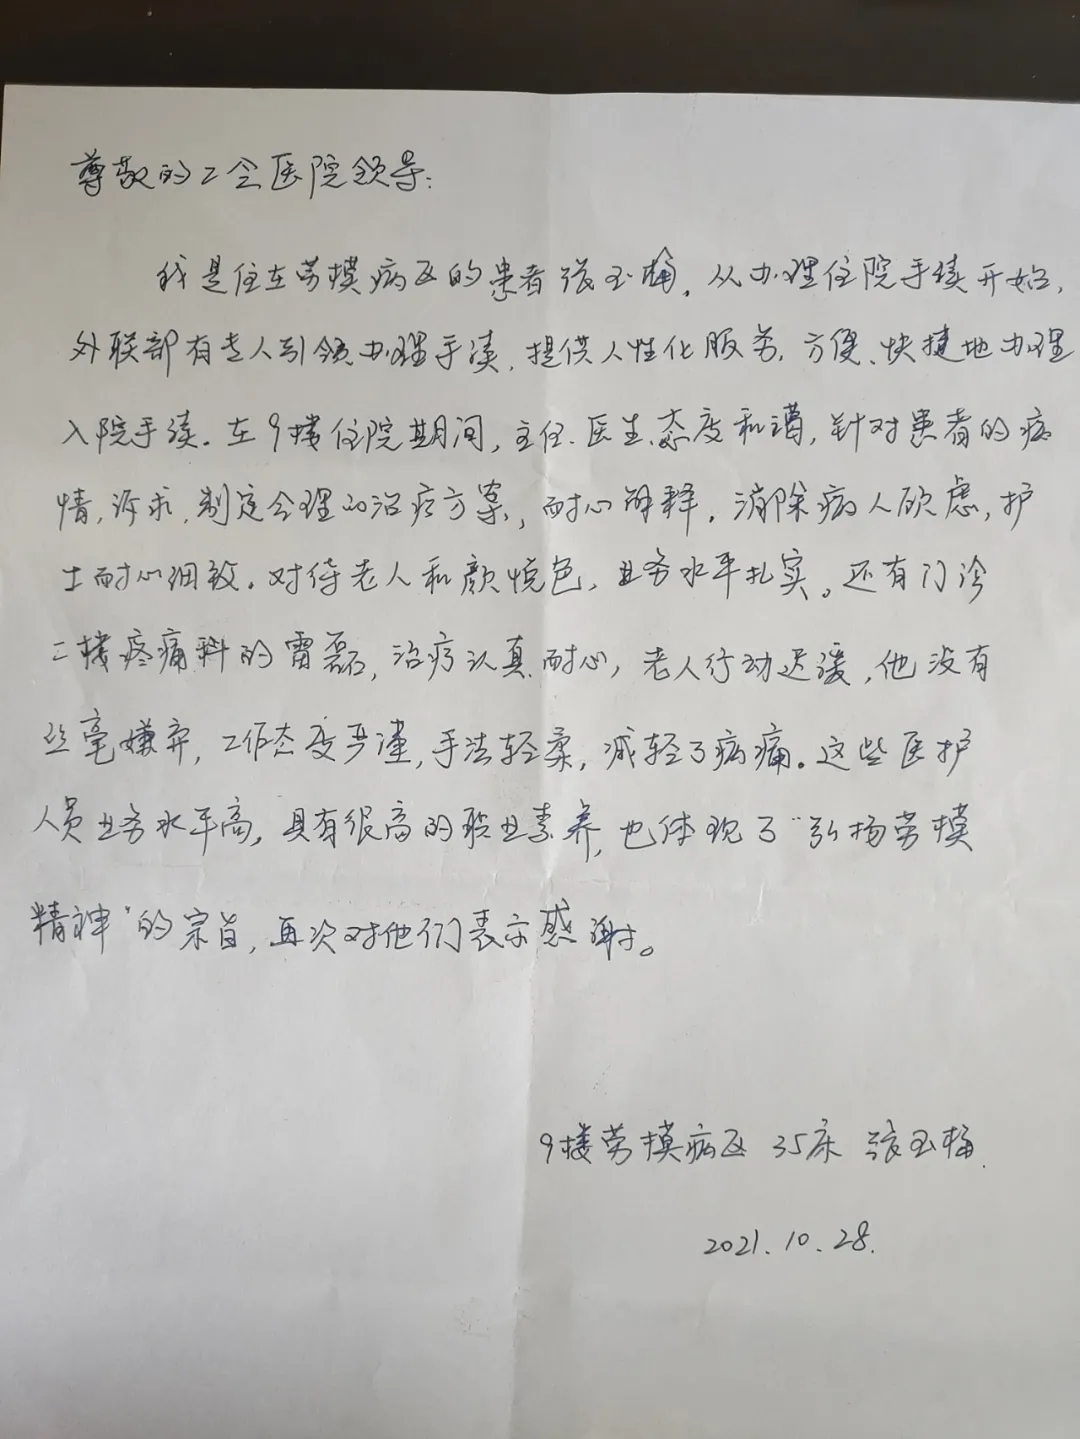 尊敬的工会医院领导:
我是住在劳模病区的患者张玉梅,从办理住院手续开始,
外联部有专人引领办理手续,提供人性化服务,方便、快捷地办理
入院手续。在9楼住院期间,主任、医生态度和蔼,针对患者的病
情,诉求,制定合理的治疗方案,耐心解释,消除病人顾虑,护
士耐心细致。对待老人和颜悦色,业务水平扎实。还有门诊
二楼疼痛科的雷磊,治疗认真耐心,老人行动迟缓,他没有
丝毫嫌弃,工作态度严谨,手法轻柔,减轻了病痛。这些医护
人员业务水平高,具有很高的职业素养,也体现了“弘扬劳模
精神”的宗旨,再次对他们表示感谢。
9楼劳模病区 35床 张玉梅
2021.10.28.